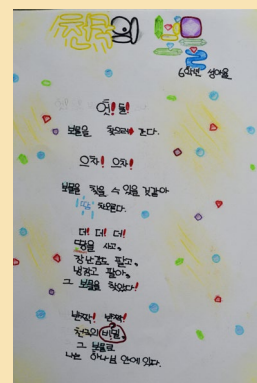 천국 보물
6학년 성아율
엇! 둘!
보물을 찾으러 간다.
으차! 으차!
보물을 찾을 수 있을 것같아
땀을 차오른다.
더! 더! 더!
땅을 사고,
장난감도 팔고,
냉장고 팔아,
그 보물을 찾았다!
반짝! 반짝!
천국의 비밀,
그 보물로
나는 하나님 안에 있다.